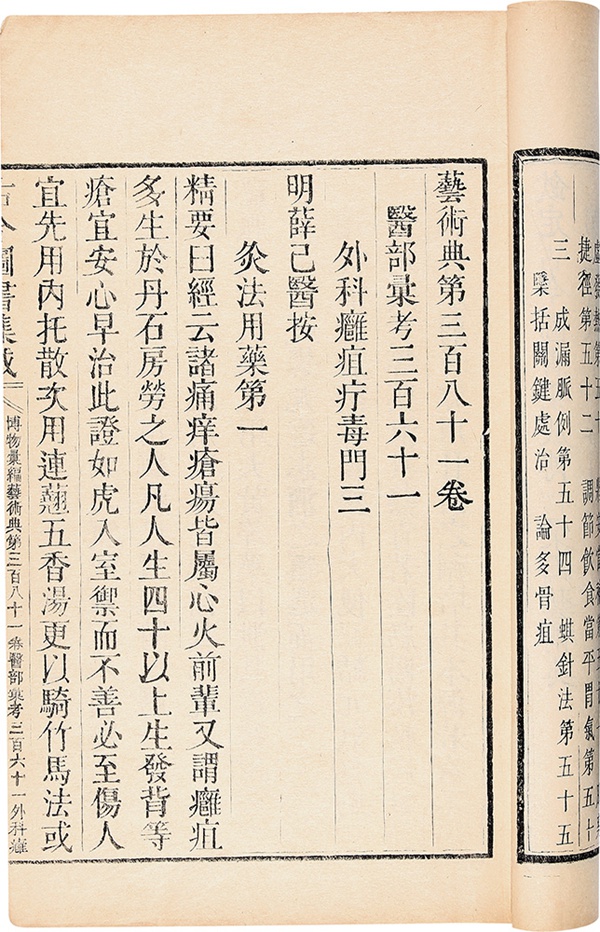 捷徑第五十二 調節飲食當平胃氣第五十
三 成漏脈例第五十四 蜞針法第五十五
檃括關鍵處治 論多骨疽
藝術典第三百八十一卷
醫部彙考三百六十一
外科癰疽疔毒門三
明薛己醫按
灸法用藥第一
精要曰經云諸痛痒瘡瘍皆屬心火前輩又謂癰疽
多生於丹石房勞之人凡人生四十以上生發背等
瘡宜安心早治此證如虎入室禦而不善必至傷人
宜先用內托散次用連翹五香湯更以騎竹馬法或
古今圖書集成 博物彙編藝術典第三百八十一卷醫部彙考三百六十一外科癰